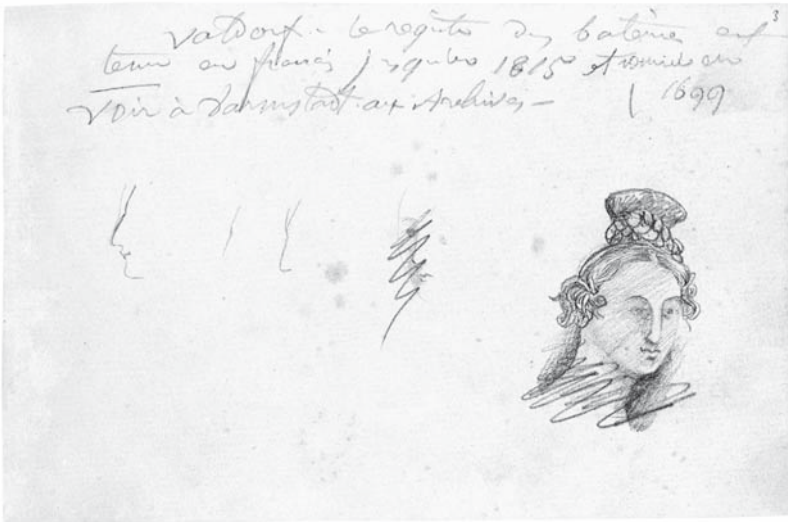 3
Valdorf - le registre des batêmes est
tenu en francês jusqu'en 1815 et
voir à Darmstadt aux Archives -
1699